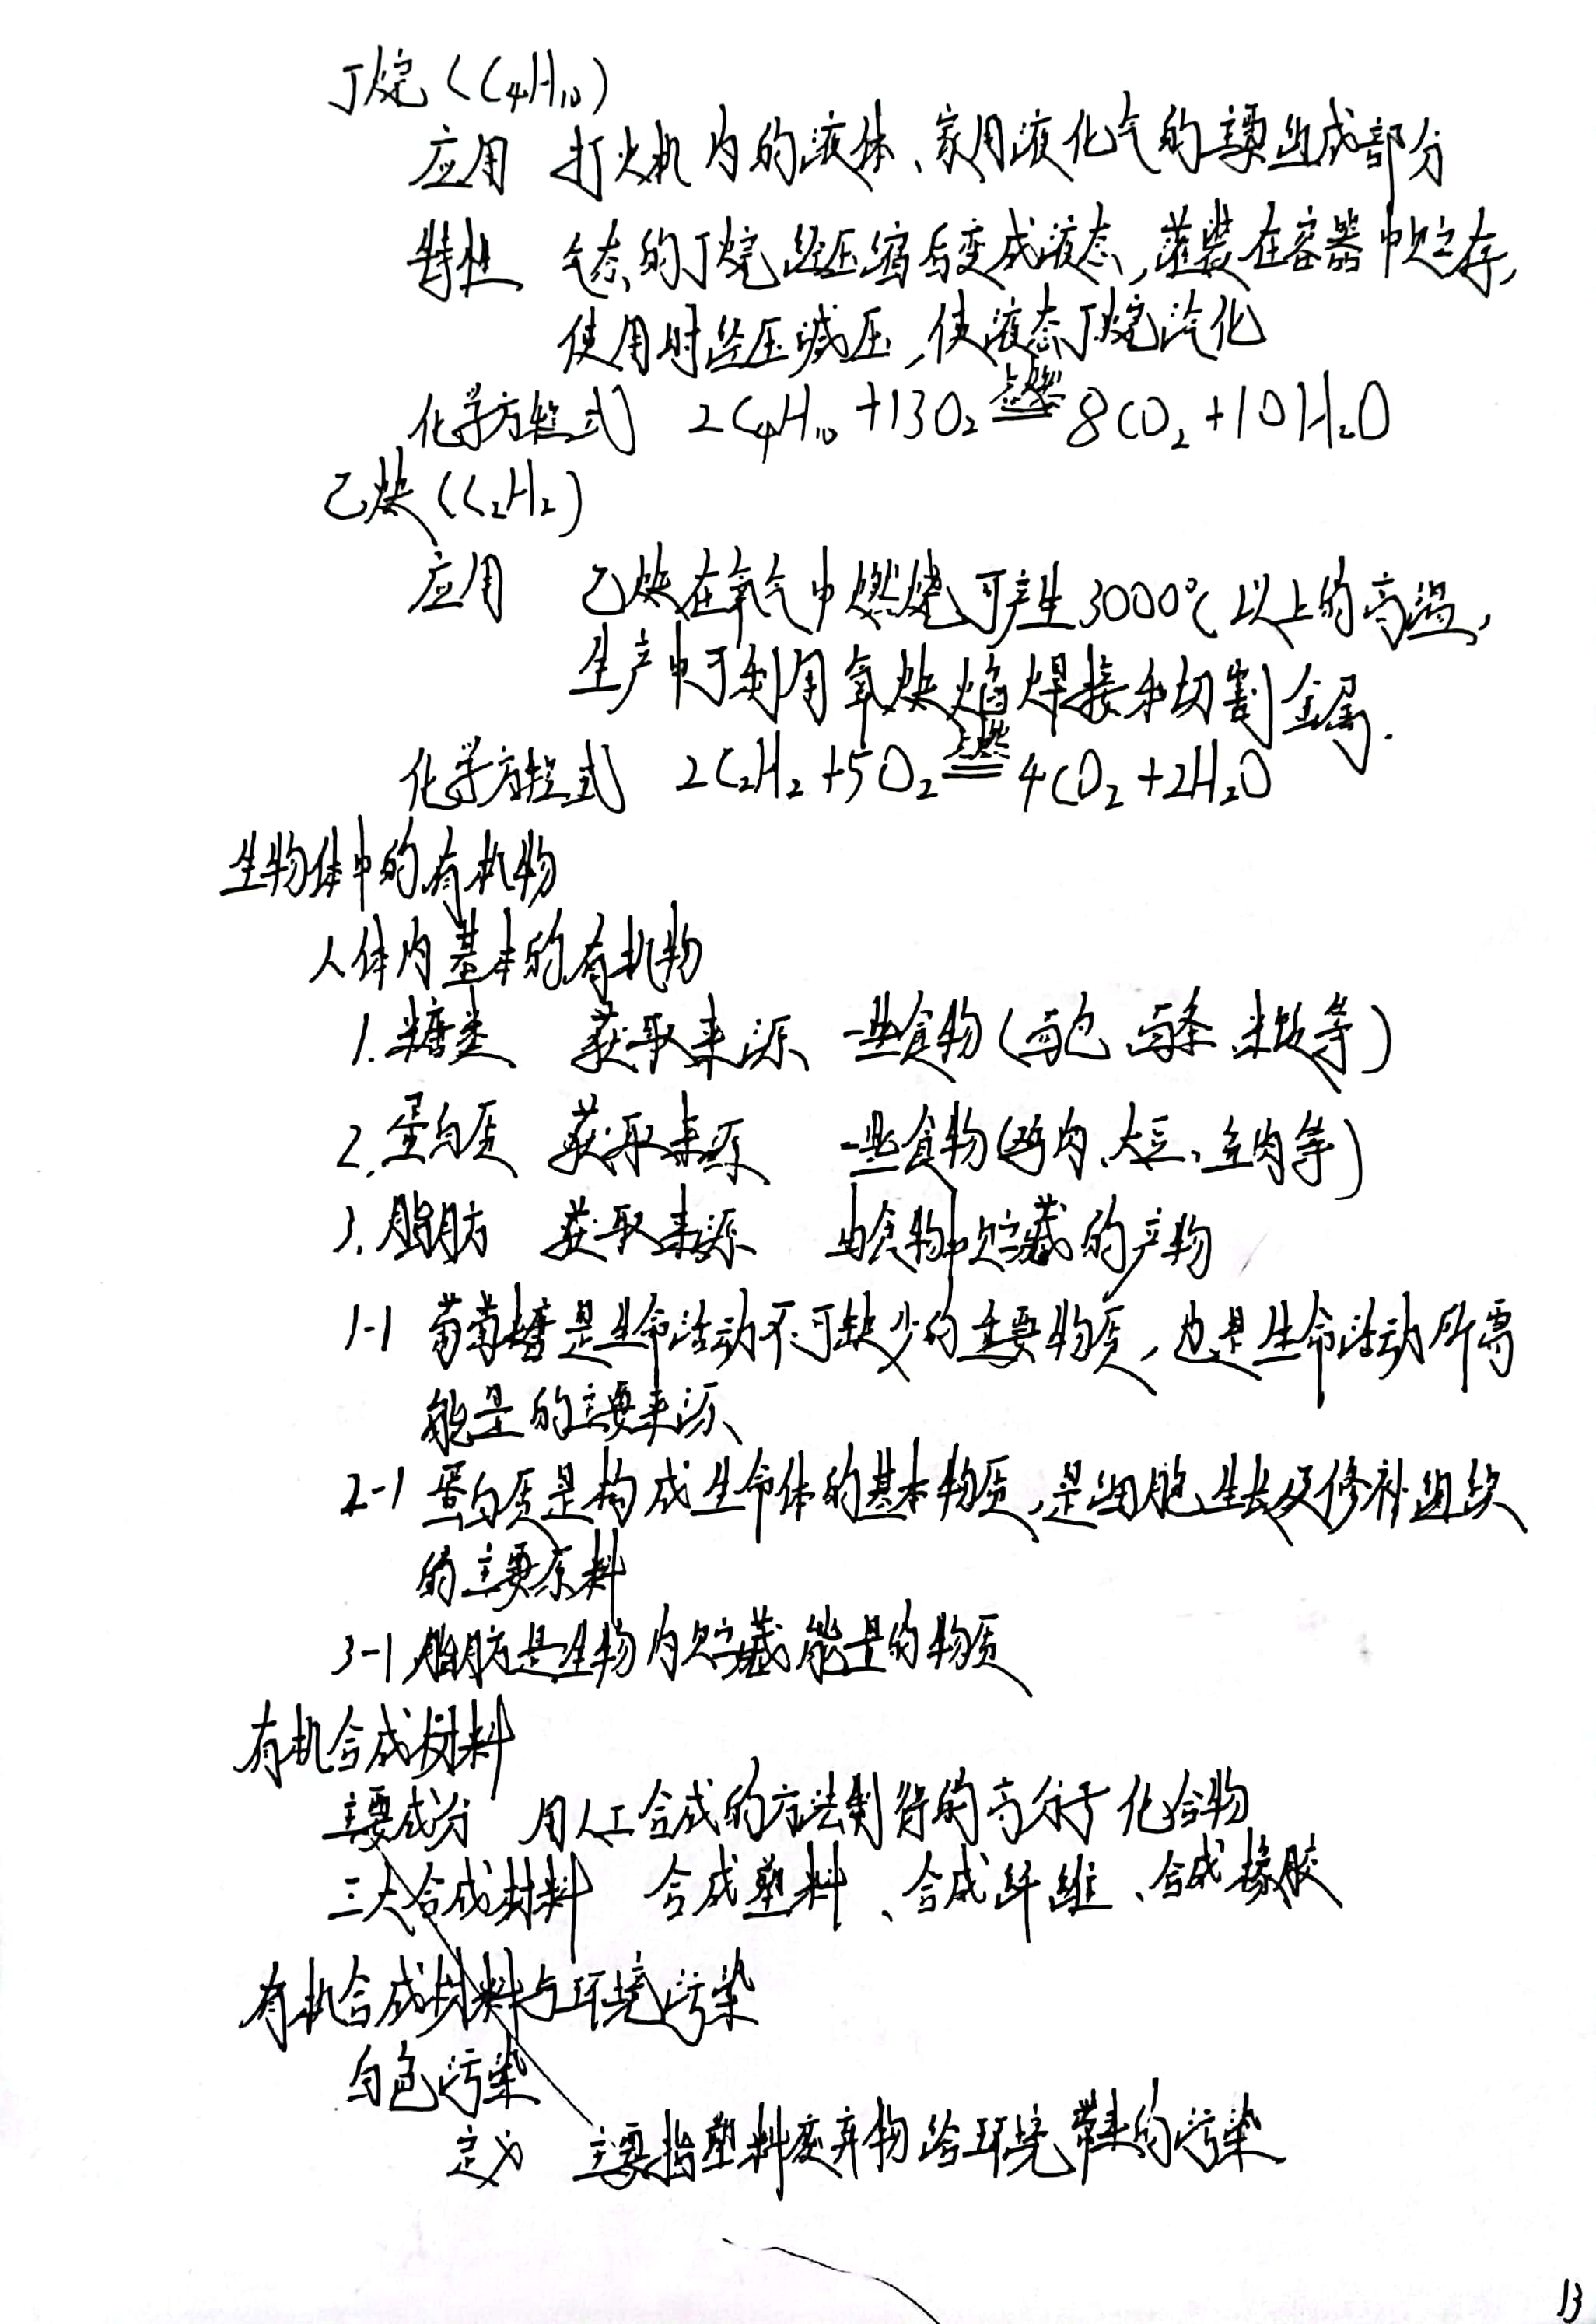 丁烷(C₄H₁₀)
应用 打火机内的液体、家用液化气的主要组成部分
特性 气态的丁烷经压缩后变成液态,灌装在容器中贮存,
使用时经压减压,使液态丁烷汽化
化学方程式 2C₄H₁₀+13O₂ 点燃 8CO₂+10H₂O
乙炔(C₂H₂)
应用 乙炔在氧气中燃烧可产生3000℃以上的高温,
生产中可利用氧炔焰焊接和切割金属.
化学方程式 2C₂H₂+5O₂ 点燃 4CO₂+2H₂O
生物体中的有机物
人体内基本的有机物
1.糖类 获取来源 一些食物(面包、面条、米饭等)
2.蛋白质 获取来源 一些食物(鸡肉、大豆、鱼肉等)
3.脂肪 获取来源 由食物中贮藏的产物
1-1 葡萄糖是生命活动不可缺少的重要物质,也是生命活动所需
能量的主要来源
2-1 蛋白质是构成生命体的基本物质,是细胞生长及修补组织
的主要原料
3-1 脂肪是生物内贮藏能量的物质
有机合成材料
主要成分 用人工合成的方法制得的高分子化合物
三大合成材料 合成塑料、合成纤维、合成橡胶
有机合成材料与环境污染
白色污染
定义 主要指塑料废弃物给环境带来的污染
13